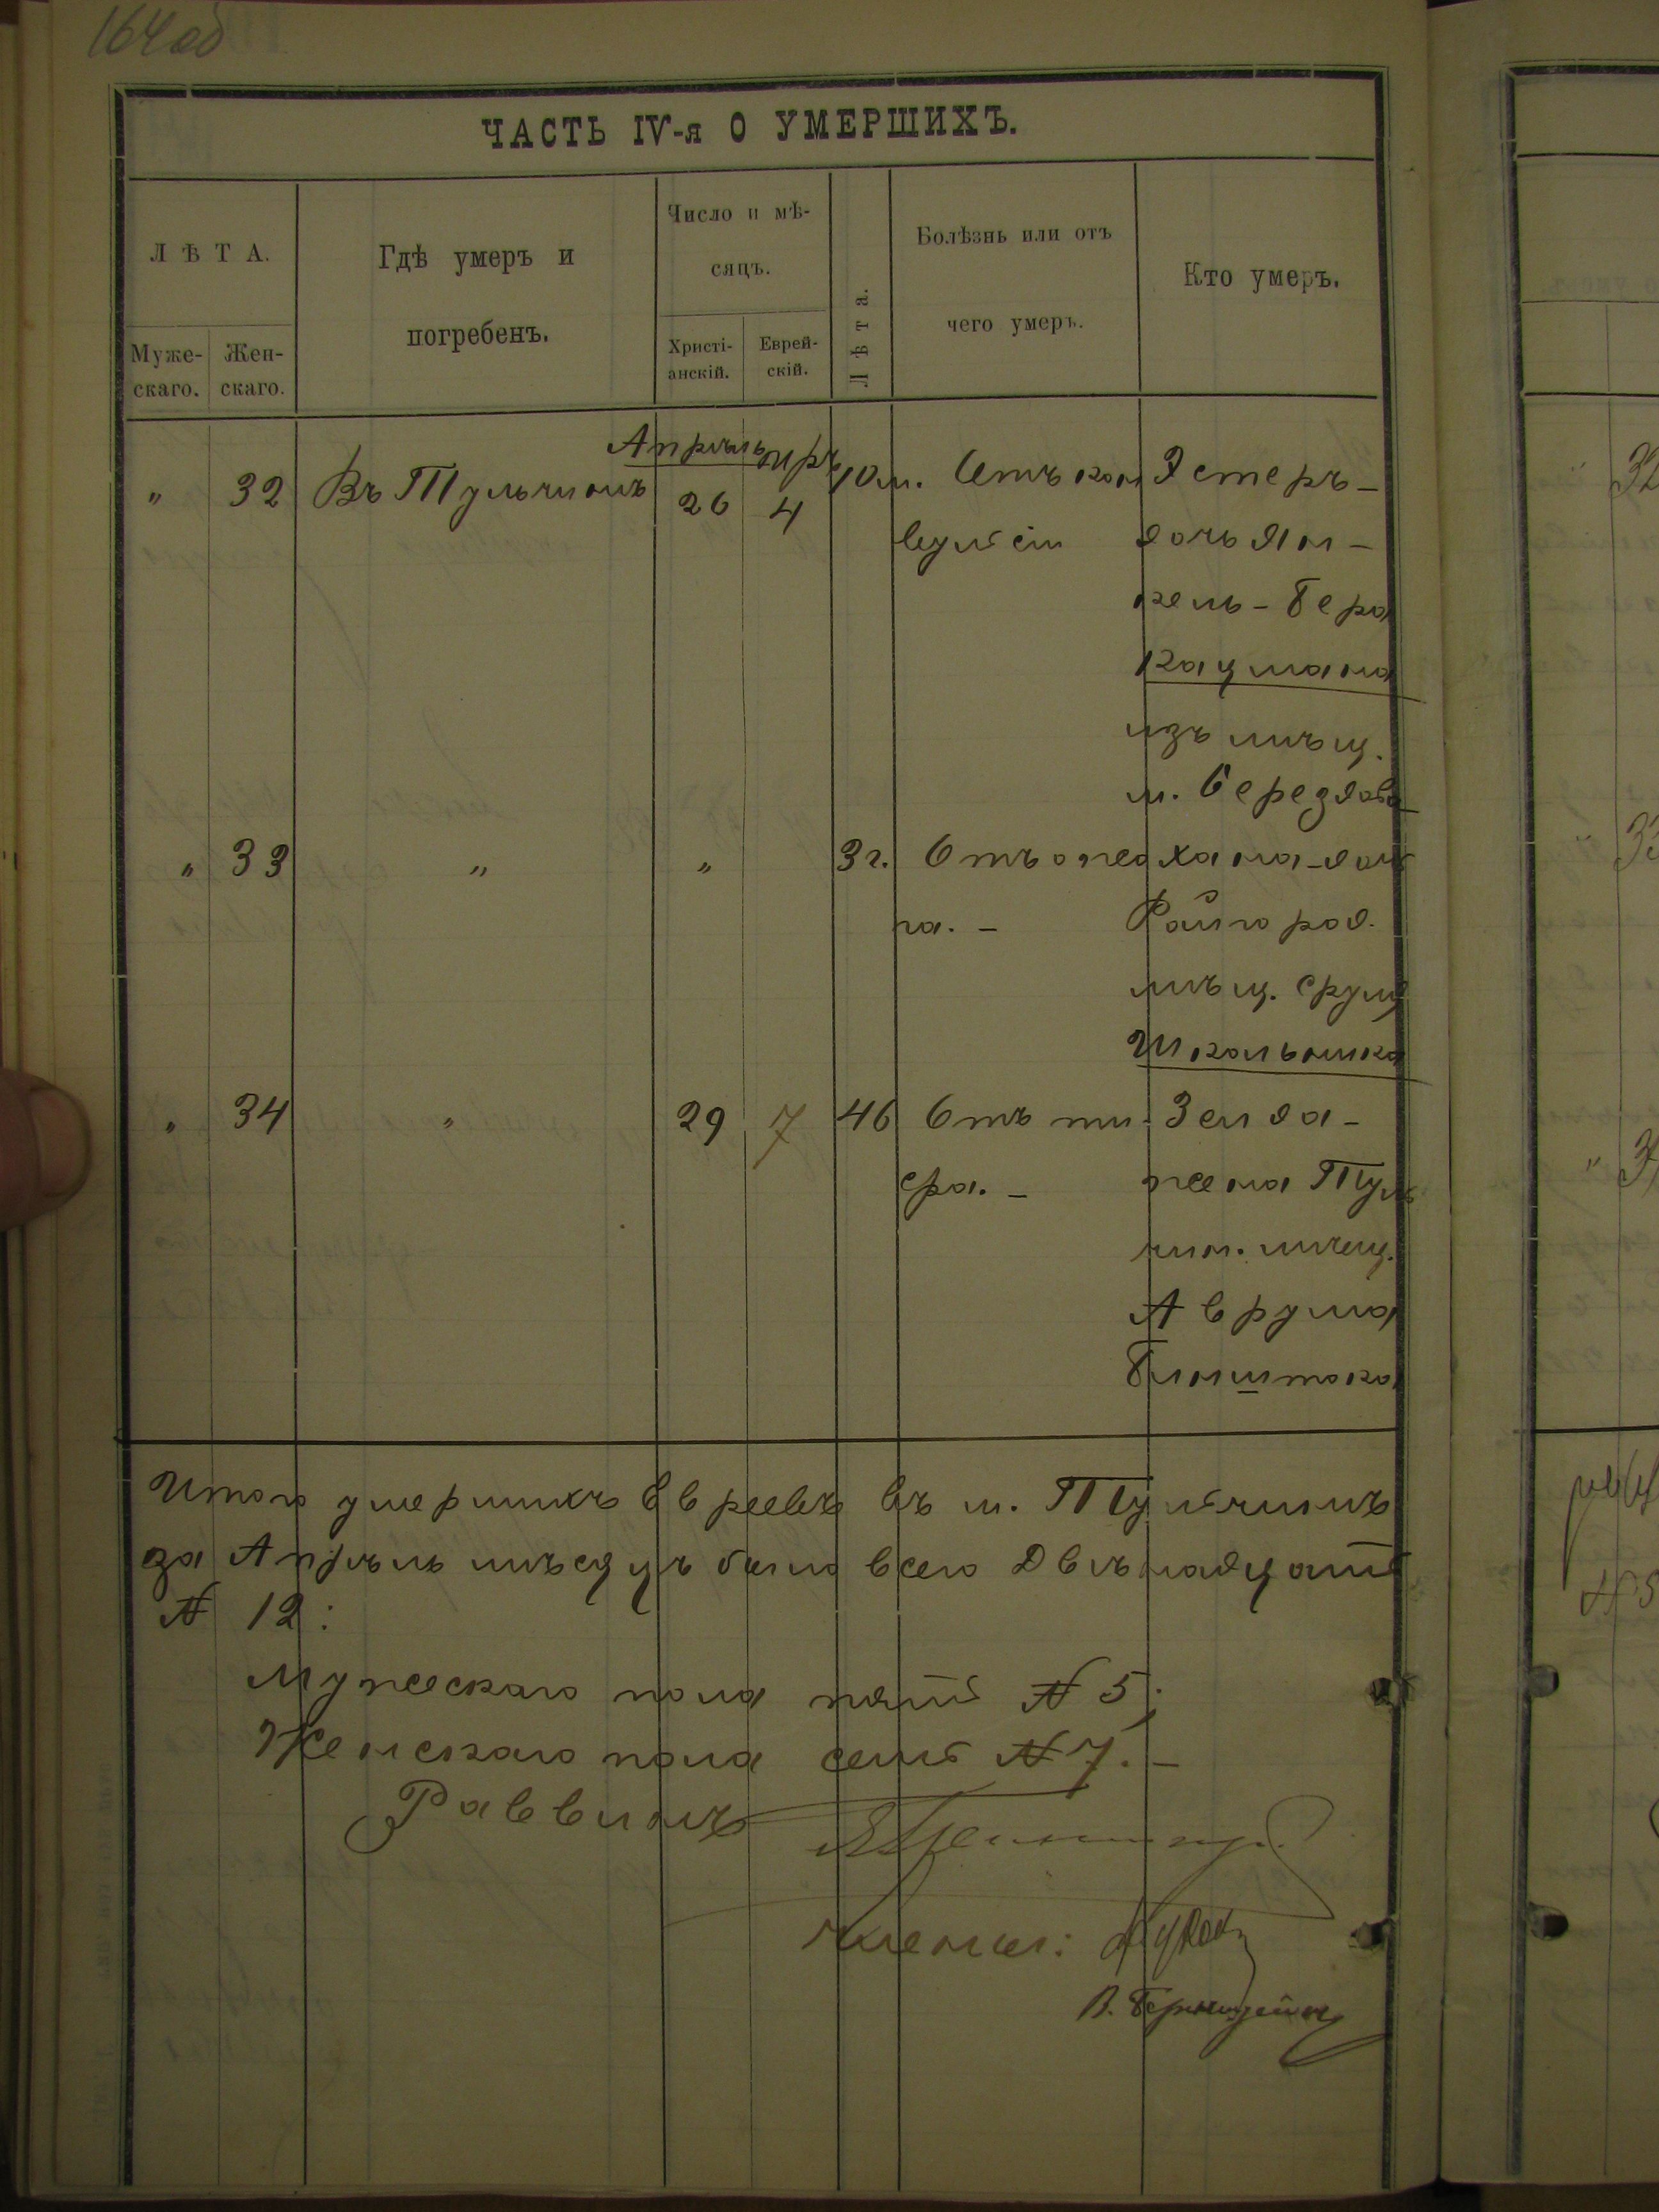 164 об
ЧАСТЬ IV-я О УМЕРШИХЪ.
ЛѢТА.
Муже-
скаго.
Жен-
скаго.
Гдѣ умеръ и
погребенъ.
Число и мѣ-
сяцъ.
Христі-
анскій.
Еврей-
скій.
Лѣта.
Болѣзнь или отъ
чего умеръ.
Кто умеръ.
Апрѣль
„ 32 Въ Тульчинѣ 26 4 10 м. Отъ кон Эстеръ –
вульсіи дочь Ян-
кель-Бера
Кацмана
изъ мѣщ.
м.
„ 33 „ „ 3 г. Отъ ожо Хана-дочь
га. – Райгород.
мѣщ. Сруля
Школьника
„ 34 „ 29 7 46 Отъ ти- Зелда –
фа. – жена Туль
чин. мѣщ.
Аврума
Итого умершихъ Евреевъ въ м. Тульчинѣ
за Апрѣль мѣсяцъ было всего Двѣнадцать
№ 12:
Мужескаго пола пять № 5;
Женскаго пола семь № 7. –
Раввинъ
Члены:
В. Бернштейнъ
32
33